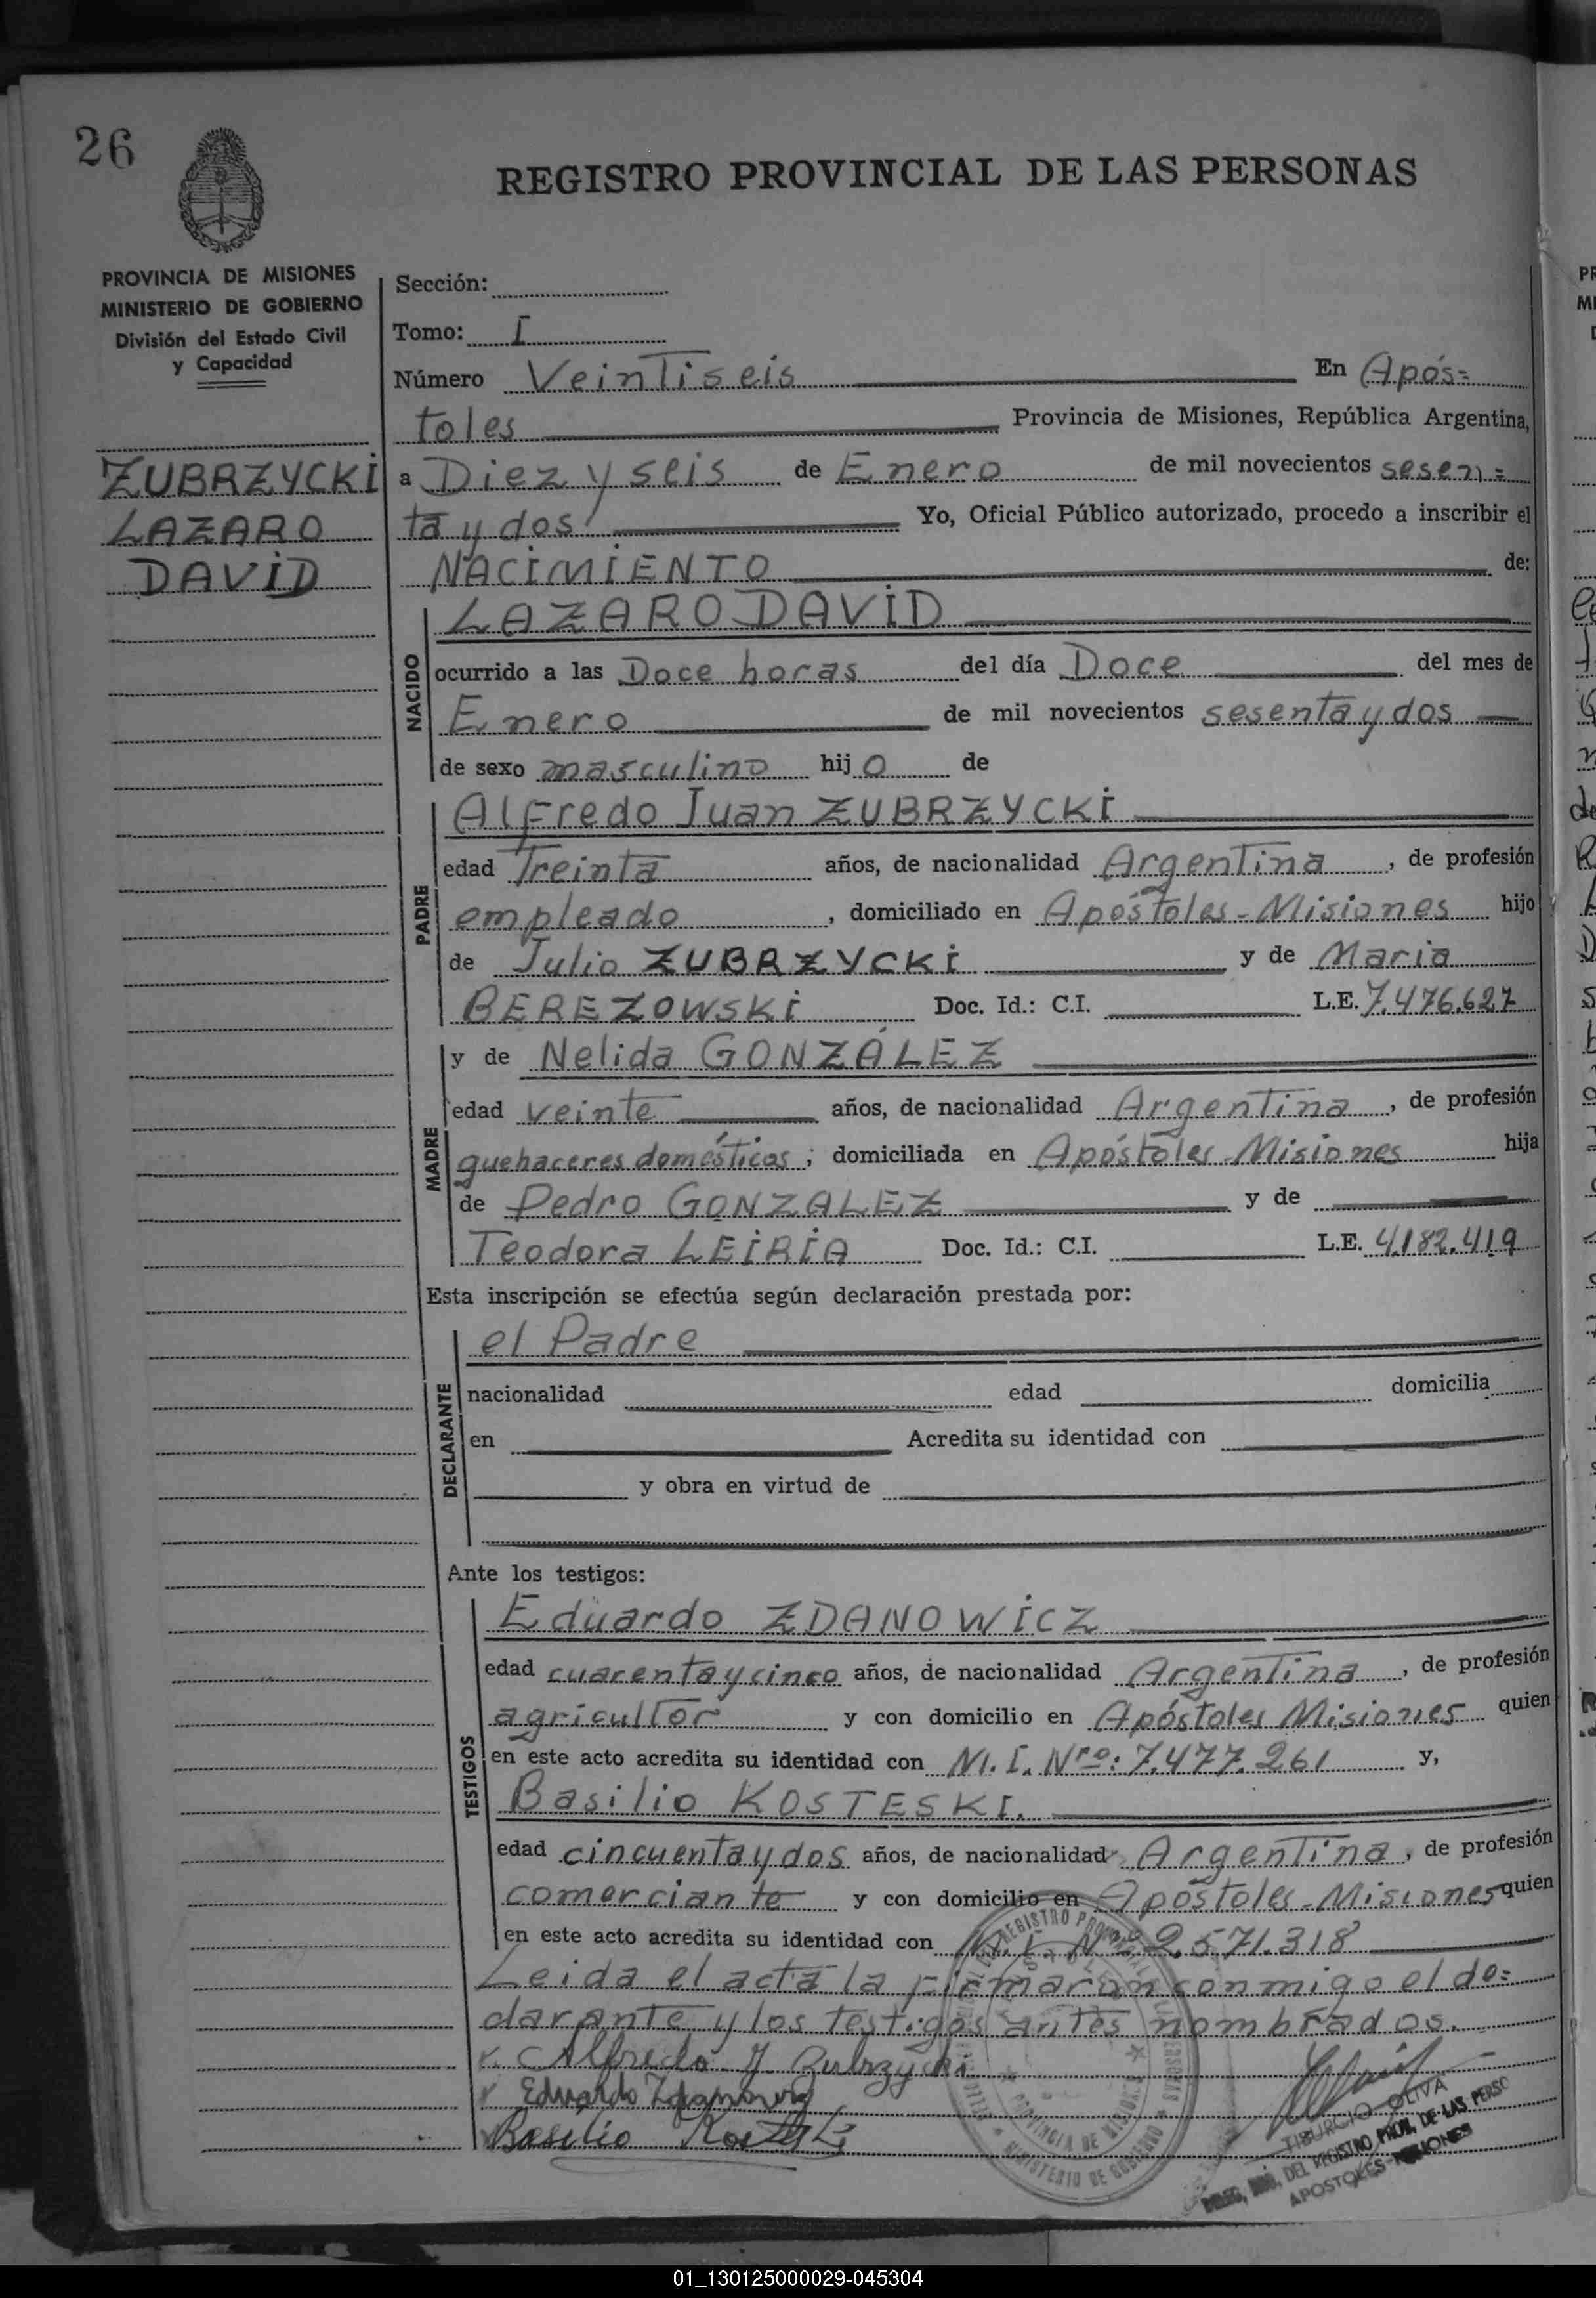 26
REGISTRO PROVINCIAL DE LAS PERSONAS
PROVINCIA DE MISIONES
MINISTERIO DE GOBIERNO
División del Estado Civil
y Capacidad
ZUBRZYCKI
LAZARO
DAVID
Sección:
Tomo: I
Número Veintiseis En Após=
toles Provincia de Misiones, República Argentina,
a Diez y seis de Enero de mil novecientos sesen=
ta y dos Yo, Oficial Público autorizado, procedo a inscribir el
NACIMIENTO de:
NACIDO
LAZARO DAVID
ocurrido a las Doce horas del día Doce del mes de
Enero de mil novecientos sesenta y dos
de sexo masculino hijo de
PADRE
Alfredo Juan ZUBRZYCKI
edad Treinta años, de nacionalidad Argentina, de profesión
empleado, domiciliado en Apóstoles-Misiones hijo
de Julio ZUBRZYCKI y de Maria
BEREZOWSKI Doc. Id.: C.I. L.E. 7.476.627
MADRE
y de Nelida GONZÁLEZ
edad veinte años, de nacionalidad Argentina, de profesión
quehaceres domésticos; domiciliada en Apóstoles-Misiones hija
de Pedro GONZALEZ y de
Teodora LEIRIA Doc. Id.: C.I. L.E. 4.182.419
Esta inscripción se efectúa según declaración prestada por:
DECLARANTE
el Padre
nacionalidad edad domicilia
en Acredita su identidad con
y obra en virtud de
Ante los testigos:
TESTIGOS
Eduardo ZDANOWICZ
edad cuarenta y cinco años, de nacionalidad Argentina, de profesión
agricultor y con domicilio en Apóstoles Misiones quien
en este acto acredita su identidad con M.I. Nro: 7.477.261 y,
Basilio KOSTESKI.
edad cincuenta y dos años, de nacionalidad Argentina, de profesión
comerciante y con domicilio en Apóstoles-Misiones quien
en este acto acredita su identidad con M.I. Nº 2.571.318
Leida el acta la firmaron conmigo el de=
clarante y los testigos antes nombrados.
Alfredo J. Zubrzycki
Eduardo Zdanowicz
Basilio Kosteski
TIBURCIO OLIVA
DEL REGISTRO PROV. DE LAS PERSO
APOSTOLES-MISIONES
01_130125000029-045304